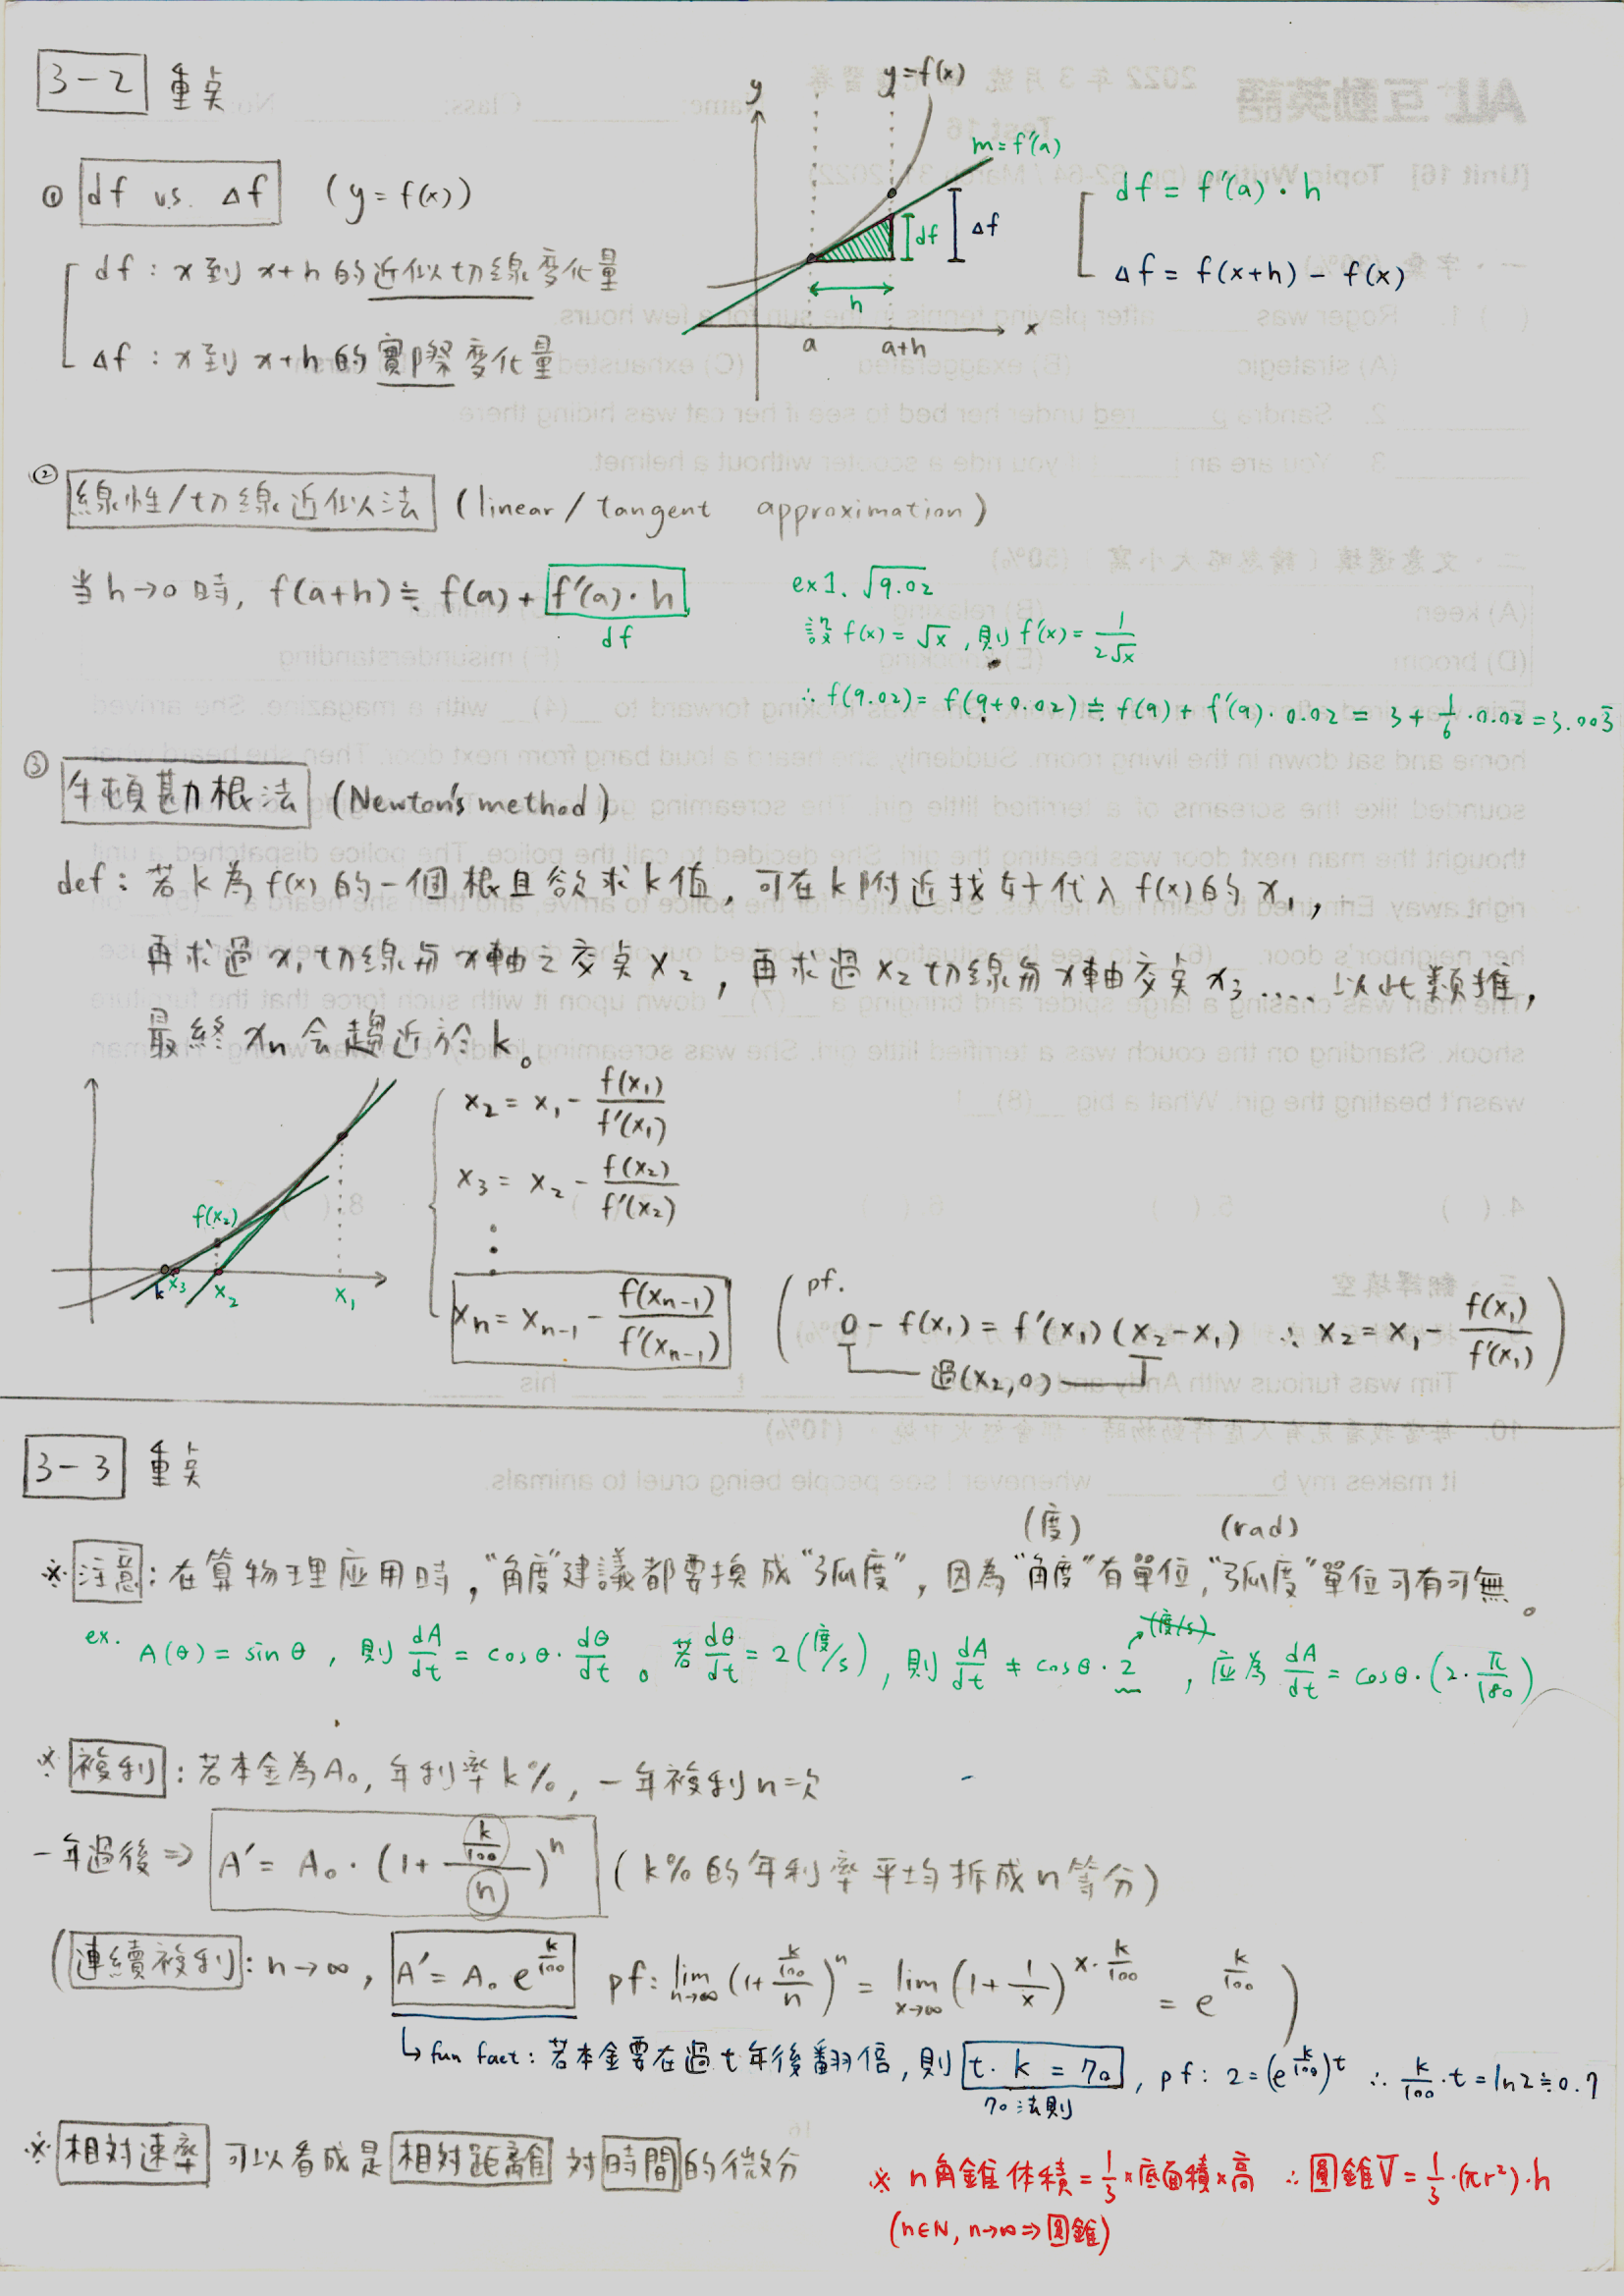 3-2 重点
① df v.s. Δf (y=f(x))
df：x到x+h的近似切線变化量
Δf：x到x+h的實際变化量
y
y=f(x)
m=f'(a)
df
Δf
h
a
a+h
x
df = f'(a)·h
Δf = f(x+h) - f(x)
② 線性/切線近似法 (linear / tangent approximation)
当h→0時, f(a+h)≒f(a)+f'(a)·h
df
ex1. √9.02
設 f(x)=√x, 則 f'(x)=1/(2√x)
∴ f(9.02)=f(9+0.02)≒f(9)+f'(9)·0.02 = 3+1/6·0.02=3.003̄
③ 牛頓勘根法 (Newton's method)
def：若k為f(x)的一個根且欲求k值, 可在k附近找好代入f(x)的x₁,
再求過x₁切線与x軸之交点x₂, 再求過x₂切線与x軸交点x₃.... 以此類推,
最終xn会趨近於k。
f(x₂)
k
x₃
x₂
x₁
x₂ = x₁ - f(x₁)/f'(x₁)
x₃ = x₂ - f(x₂)/f'(x₂)
⋮
xn = xn-1 - f(xn-1)/f'(xn-1)
(pf.
0 - f(x₁) = f'(x₁)(x₂-x₁) ∴ x₂ = x₁ - f(x₁)/f'(x₁))
過(x₂,0)
3-3 重点
(度) (rad)
※注意：在算物理应用時, "角度"建議都要換成"弧度", 因為"角度"有單位,"弧度"單位可有可無。
(度/s)
ex. A(θ)=sinθ, 則 dA/dt = cosθ·dθ/dt。若dθ/dt=2(度/s), 則 dA/dt ≠ cosθ·2, 应為 dA/dt = cosθ·(2·π/180)
※複利：若本金為A₀, 年利率k%, 一年複利n次
一年過後⇒ A' = A₀·(1+(k/100)/n)ⁿ (k%的年利率平均拆成n等分)
(連續複利：n→∞, A'=A₀e^(k/100) pf: lim n→∞ (1+(k/100)/n)ⁿ = lim x→∞ (1+1/x)^(x·k/100) = e^(k/100))
↳ fun fact：若本金要在過t年後翻倍, 則 t·k=70, pf: 2=(e^(k/100))^t ∴ k/100·t=ln2≒0.7
70法則
※相対速率 可以看成是 相対距離 対 時間 的微分
※ n角錐体積=1/3×底面積×高 ∴圓錐V=1/3·(πr²)·h
(n∈N, n→∞⇒圓錐)